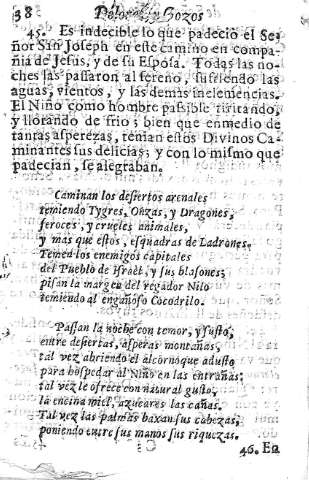 38 Dolores, y Gozos
45. Es indecible lo que padeciò el Se-
ñor San Joseph en este camino en compa-
ñia de Jesus, y de su Esposa. Todas las no-
ches las passaron al sereno, sufriendo las
aguas, vientos, y las demàs inclemencias.
El Niño como hombre passible tiritando,
y llorando de frio; bien que enmedio de
tantas asperezas, tenian estos Divinos Ca-
minantes sus delicias; y con lo mismo que
padecian, se alegraban.
Caminan los desiertos arenales
temiendo Tygres, Onzas, y Dragones,
feroces, y crueles animales,
y mas que estos, esquadras de Ladrones.
Temen los enemigos capitales
del Pueblo de Israèl, y sus blasones;
pisan la margen del regador Nilo
temiendo al engañoso Cocodrilo.
Passan la noche con temor, y susto,
entre desiertas, asperas montañas,
tal vez abriendo el alcornoque adusto
para hospedar al Niño en las entrañas;
tal vez le ofrece con natural gusto,
la encina miel, azucares las cañas.
Tal vez las palmas baxan sus cabezas,
poniendo entre sus manos sus riquezas.
46. En